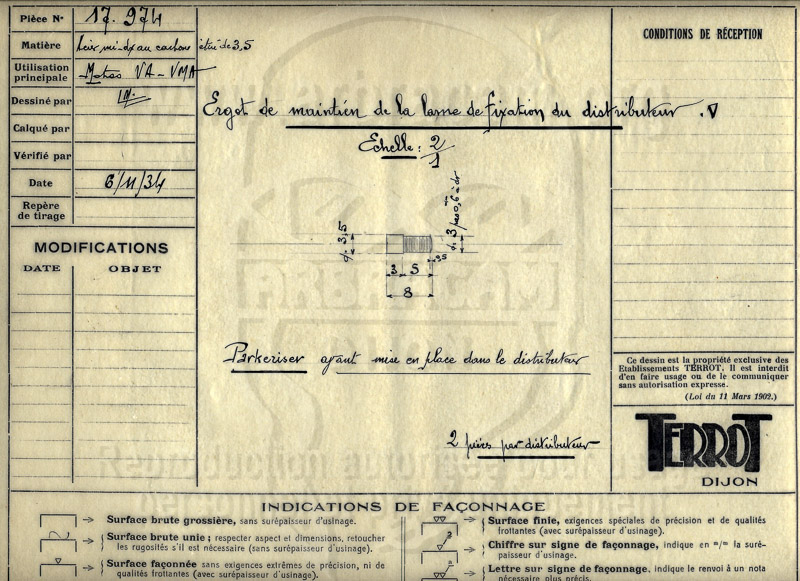 Pièce N° 17.974
Matière
étiré de 3,5
Utilisation principale Motos VA - VMA
Dessiné par
Calqué par
Vérifié par
Date 6/11/34
Repère de tirage
MODIFICATIONS
DATE OBJET
Ergot de maintien de la lame de fixation du distributeur
Echelle: 2/1
3,5
3 pas 0,6
3 5
8
Parkeriser avant mise en place dans le distributeur
2 pièces par distributeur
CONDITIONS DE RÉCEPTION
Ce dessin est la propriété exclusive des
Etablissements TERROT. Il est interdit
d'en faire usage ou de le communiquer
sans autorisation expresse.
(Loi du 11 Mars 1902.)
TERROT
DIJON
INDICATIONS DE FAÇONNAGE
Surface brute grossière, sans surépaisseur d'usinage.
Surface brute unie; respecter aspect et dimensions, retoucher
les rugosités s'il est nécessaire (sans surépaisseur d'usinage).
Surface façonnée sans exigences extrêmes de précision, ni de
qualités frottantes (avec surépaisseur d'usinage).
Surface finie, exigences spéciales de précision et de qualités
frottantes (avec surépaisseur d'usinage).
Chiffre sur signe de façonnage, indique en m/m la suré-
paisseur d'usinage.
Lettre sur signe de façonnage, indique le renvoi à un nota
nécessaire plus précis.